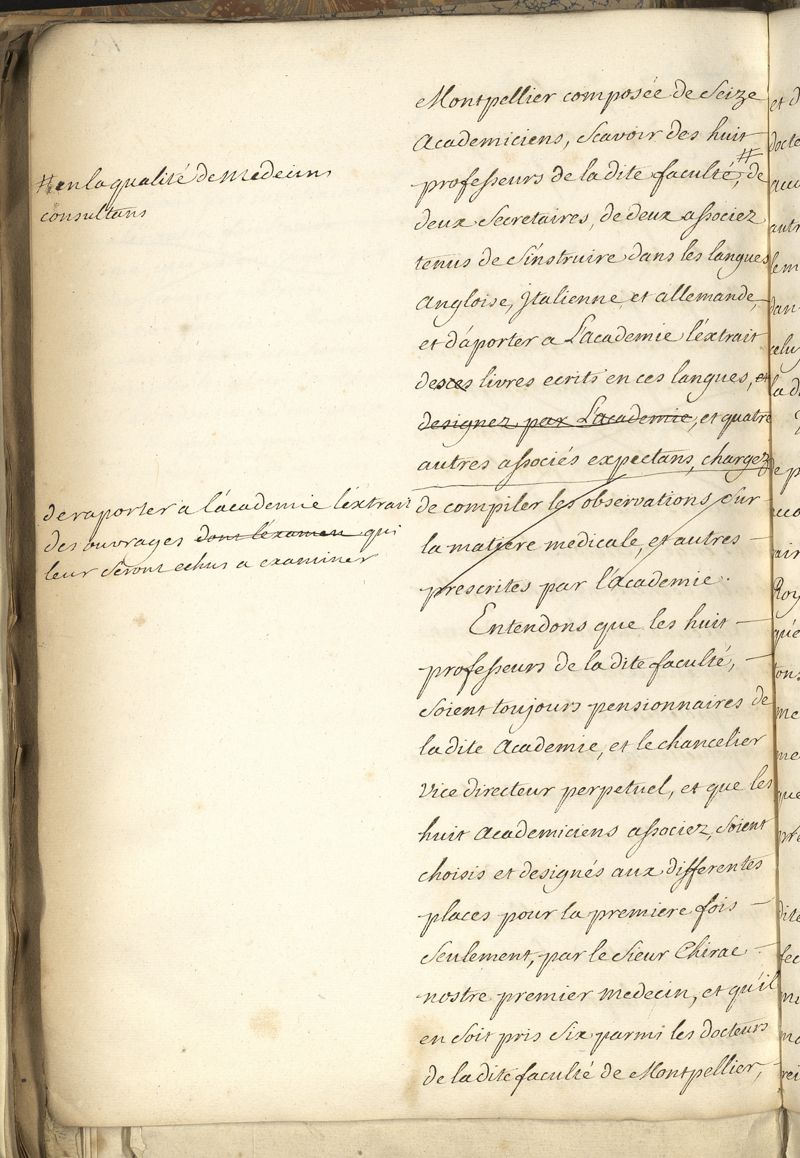 # en la qualité de Medecins
consultans
de raporter a l'académie l'éxtrait
des ouvrages dont l'éxamen qui
leur seront echus a examiner
Montpellier composée de Seize
Academiciens, Scavoir des huit
professeurs de la dite faculté, # de
deux Secretaires, de deux associez
tenus de S'instruire dans les langues
Angloise, Italienne, et allemande,
et d'áporter a L'academie l'éxtrait
des livres ecrits en ces langues, et
designez par L'academie, et quatre
autres associés expectans, chargez
de compiler les observations Sur
la matiere medicale, et autres
prescrites par l'academie.
Entendons que les huit
professeurs de la dite faculté,
Soient toujours pensionnaires de
la dite Academie, et le chancelier
Vice directeur perpetuel, et que les
huit Academiciens associez, Soient
choisis et designés aux differentes
places pour la premiere fois
Seulement, par le Sieur Chirac
nostre premier medecin, et qu'il
en Soit pris Six parmi les docteurs
de la dite faculté de Montpellier,